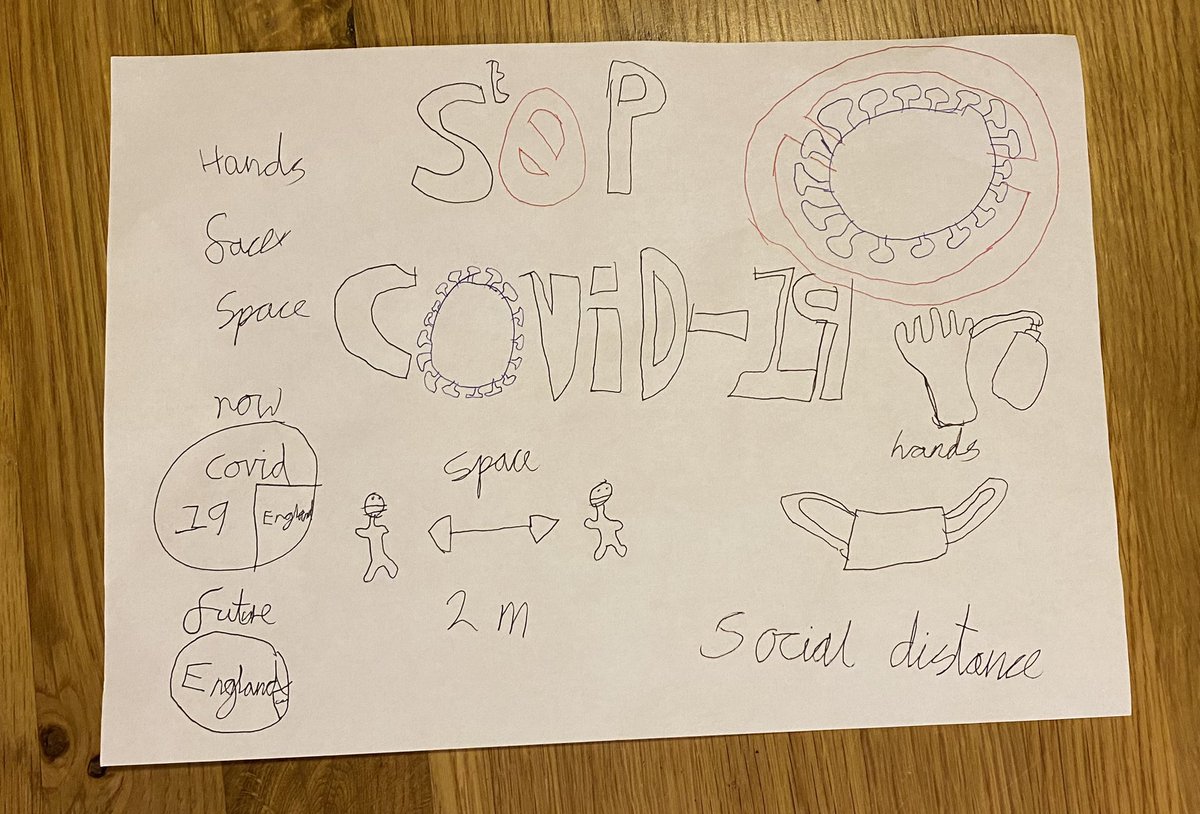 StOP
COViD-19
Hands
face
Space
now
Covid
19
England
future
England
space
2 m
hands
Social distance